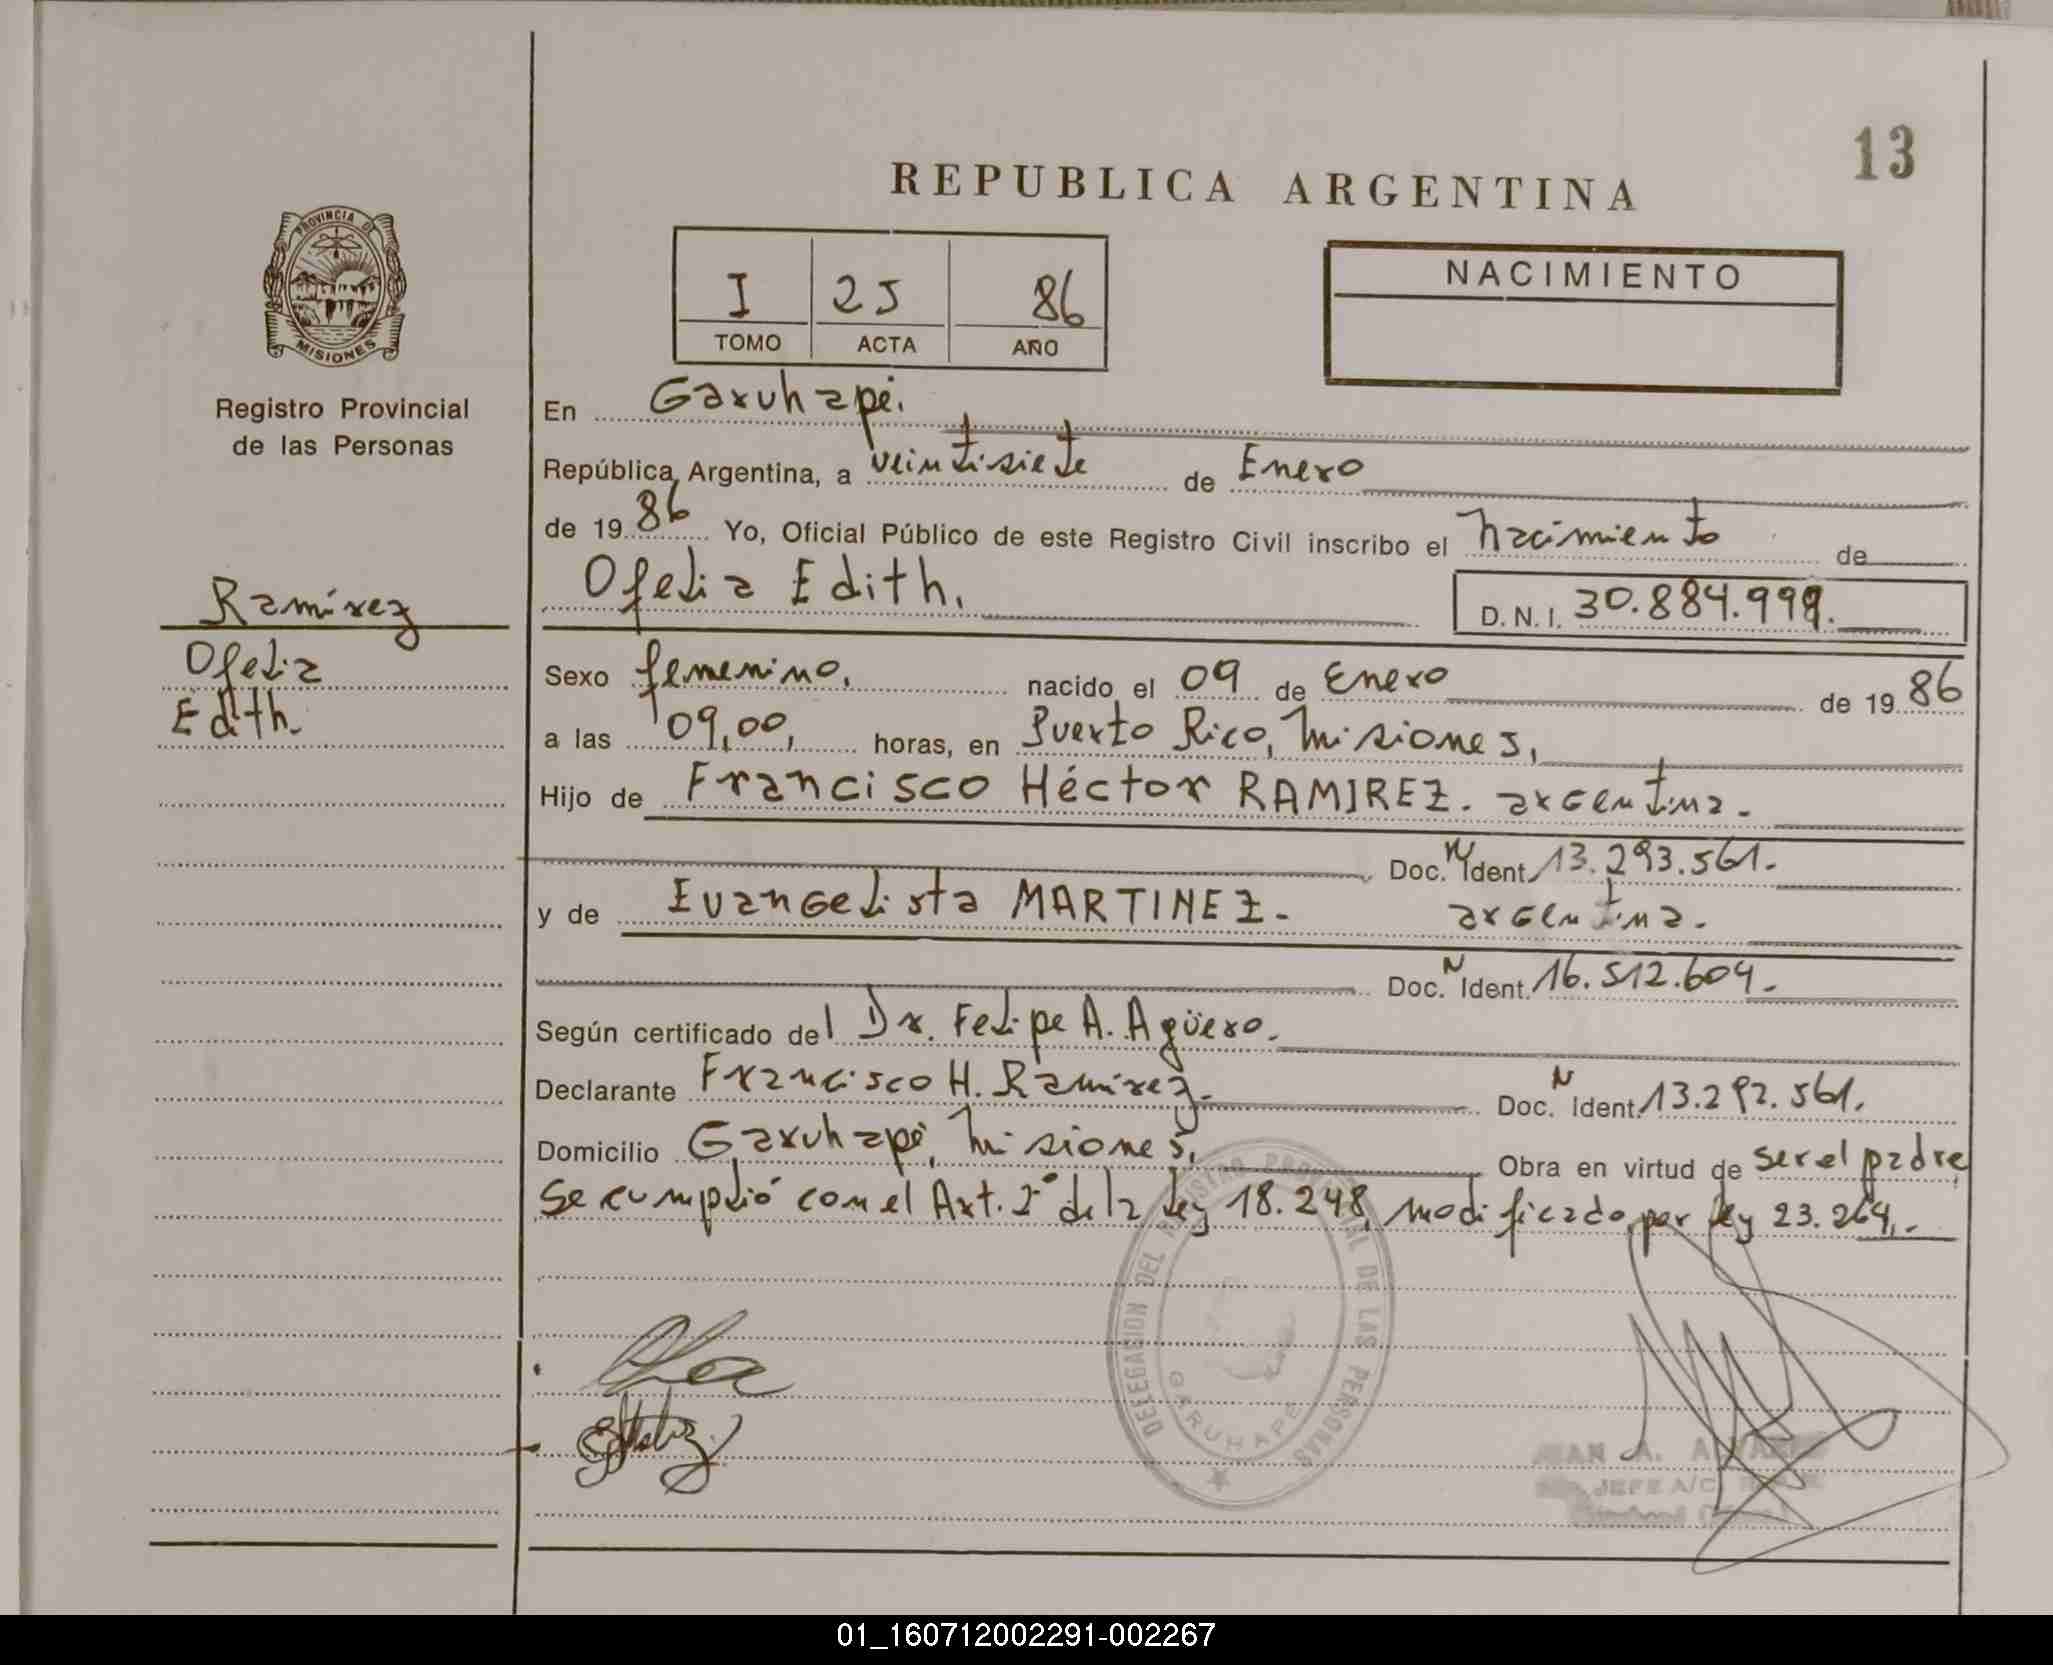 13
REPUBLICA ARGENTINA
PROVINCIA DE
MISIONES
Registro Provincial
de las Personas
I 25 86
TOMO ACTA AÑO
NACIMIENTO
En Garuhapé.
República Argentina, a veintisiete de Enero
de 19 86 Yo, Oficial Público de este Registro Civil inscribo el nacimiento de
Ofelia Edith. D. N. I. 30.884.999.
Ramírez
Ofelia
Edith.
Sexo femenino, nacido el 09 de Enero de 19 86
a las 09,00, horas, en Puerto Rico, Misiones,
Hijo de Francisco Héctor RAMIREZ. argentina.
Doc. N Ident. 13.293.561.
y de Evangelista MARTINEZ. argentina.
Doc. N Ident. 16.512.604.
Según certificado del Dr. Felipe A. Agüero.
Declarante Francisco H. Ramírez. Doc. N Ident. 13.292.561.
Domicilio Garuhapé, Misiones, Obra en virtud de ser el padre
Se cumplió con el Art. 2° de la ley 18.248, modificado por ley 23.264.-
DELEGACION DEL REGISTRO PROVINCIAL DE LAS PERSONAS
GARUHAPE
JUAN A. ALVAREZ
JEFE A/C
01_160712002291-002267